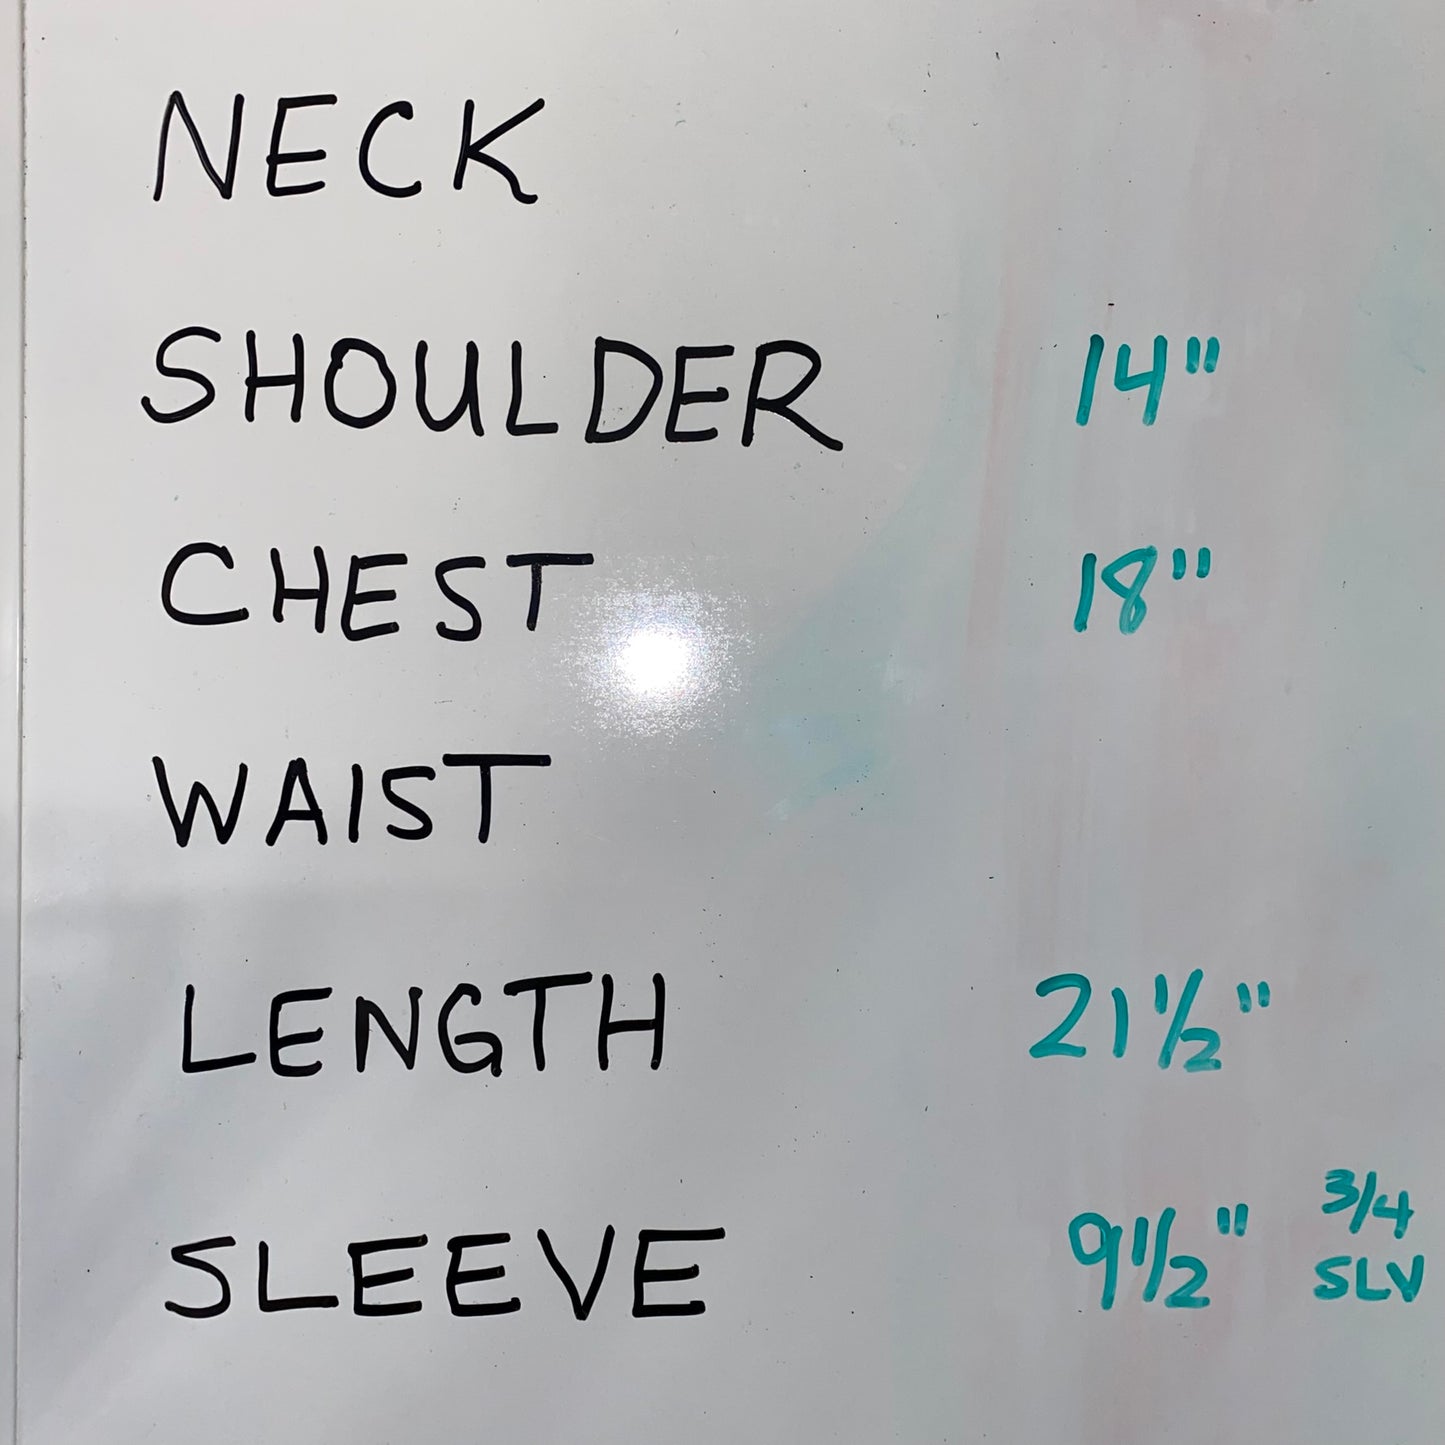 NECK
SHOULDER 14"
CHEST 18"
WAIST
LENGTH 21 1/2"
SLEEVE 9 1/2" 3/4
SLV